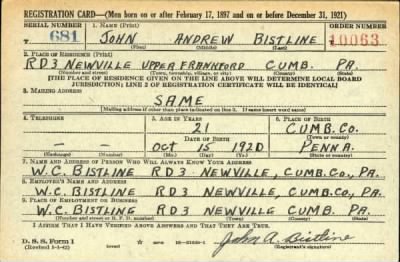 REGISTRATION CARD—(Men born on or after February 17, 1897 and on or before December 31, 1921)
SERIAL NUMBER 1. NAME (Print) ORDER NUMBER
T 681 JOHN ANDREW BISTLINE 10063
(First) (Middle) (Last)
2. PLACE OF RESIDENCE (Print)
RD3 NEWVILLE UPPER FRANKFORD CUMB. PA.
(Number and street) (Town, township, village, or city) (County) (State)
[THE PLACE OF RESIDENCE GIVEN ON THE LINE ABOVE WILL DETERMINE LOCAL BOARD
JURISDICTION; LINE 2 OF REGISTRATION CERTIFICATE WILL BE IDENTICAL]
3. MAILING ADDRESS
SAME
[Mailing address if other than place indicated on line 2. If same insert word same]
4. TELEPHONE 5. AGE IN YEARS 6. PLACE OF BIRTH
21 CUMB. CO.
DATE OF BIRTH (Town or county)
OCT 15 1920 PENNA.
(Exchange) (Number) (Mo.) (Day) (Yr.) (State or country)
7. NAME AND ADDRESS OF PERSON WHO WILL ALWAYS KNOW YOUR ADDRESS
W.C. BISTLINE RD3 NEWVILLE, CUMB.CO., PA.
8. EMPLOYER'S NAME AND ADDRESS
W.C. BISTLINE RD3 NEWVILLE, CUMB.CO., PA.
9. PLACE OF EMPLOYMENT OR BUSINESS
W.C. BISTLING RD3 NEWVILLE CUMB. PA.
(Number and street or R. F. D. number) (Town) (County) (State)
I AFFIRM THAT I HAVE VERIFIED ABOVE ANSWERS AND THAT THEY ARE TRUE.
D. S. S. Form 1
John A. Bistline
(Registrant's signature)